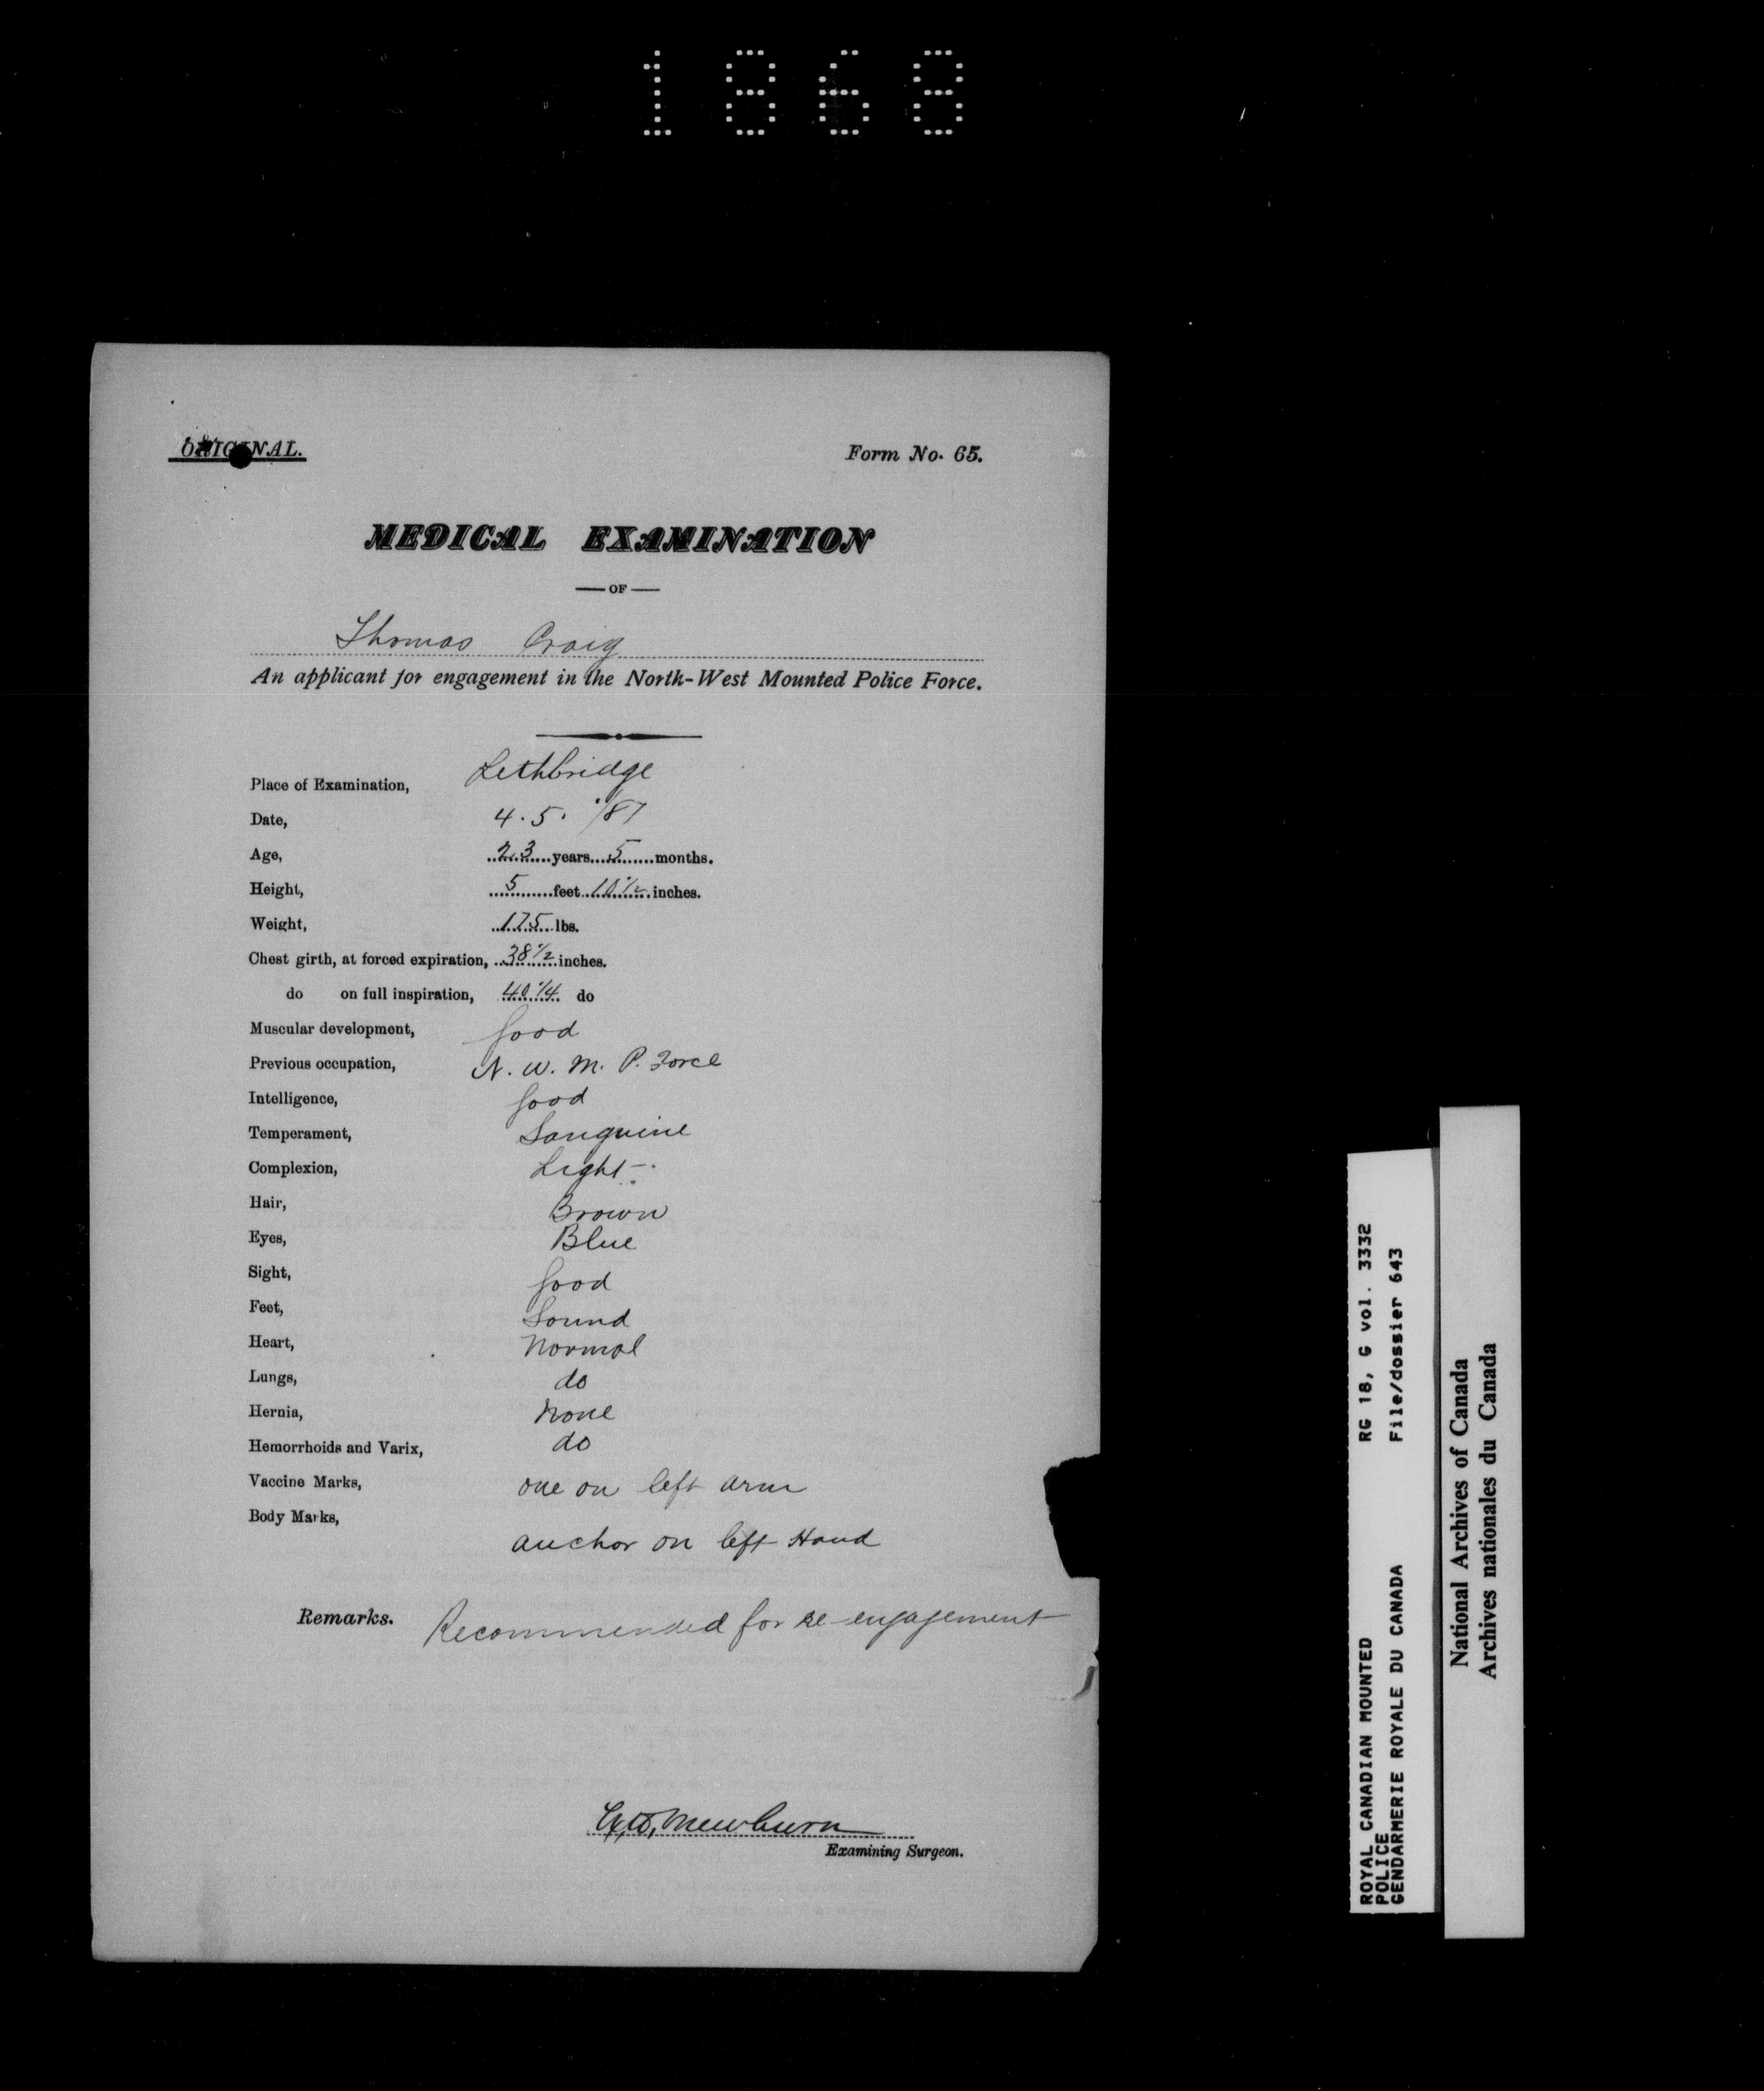 1868
ORIGINAL.
Form No. 65.
MEDICAL EXAMINATION
OF
Thomas Craig
An applicant for engagement in the North-West Mounted Police Force.
Place of Examination, Lethbridge
Date, 4.5. '87
Age, 23 years 5 months.
Height, 5 feet 10 1/2 inches.
Weight, 175 lbs.
Chest girth, at forced expiration, 38 1/2 inches.
do on full inspiration, 40 1/4 do
Muscular development, Good
Previous occupation, N. W. M. P. Force
Intelligence, Good
Temperament, Sanguine
Complexion, Light
Hair, Brown
Eyes, Blue
Sight, Good
Feet, Sound
Heart, Normal
Lungs, do
Hernia, None
Hemorrhoids and Varix, do
Vaccine Marks, one on left arm
Body Marks, anchor on left Hand
Remarks. Recommended for re-engagement
Mewburn
Examining Surgeon.
ROYAL CANADIAN MOUNTED POLICE RG 18, G vol. 3332
GENDARMERIE ROYALE DU CANADA File/dossier 643
National Archives of Canada
Archives nationales du Canada